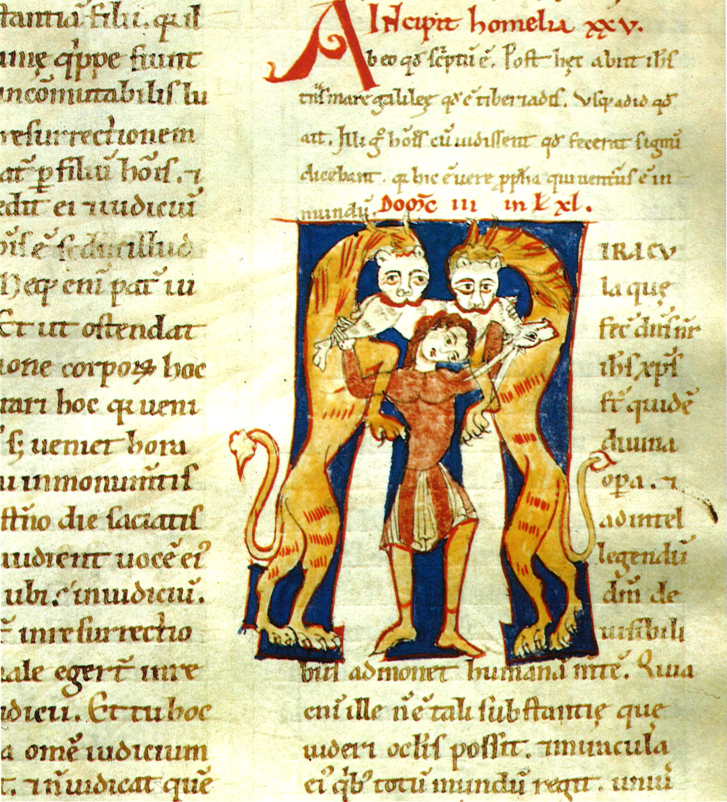 stantia filii. qr il
ume q'ppe fiunt
incōmutabilis lu
resurrectionem
at p filiū hoīs. ⁊
edit ei ⁊ iudiciū
Neq; eni pat iu
Et ut ostendat
ione corporꝝ hoc
rari hoc qr ueni
s; ueniet hora
u in monumtis
die saciatis
audient uocē ei'
ubi. in iudiciū.
in resurrectio
male egert in re
udicii. Et tu hoc
a omē iudicium
t. ⁊ n iudicat quē
INcipit homelia xxv.
Ab eo qd scriptū ē. Post hęc abiit ihs
trns mare galileę qd ē tiberiadis. Vsq; ad id qd
ait. Illi g hoīes cū uidissent qd fecerat signū
dicebant. qr hic ē uere ppha qui uenturus ē in
mundū. Dom̄c iii in xl.
MIRACV
la que
fec dn̄s nr̄
ihs xps
st quidē
diuina
opa. ⁊
ad intel
legendū
dm̄ de
uisibili
bus admonet humanā mtē. Quia
eni ille n ē tali substantię que
uideri oclis possit. ⁊ miracula
ei' qb; totū mundū regit. uniū